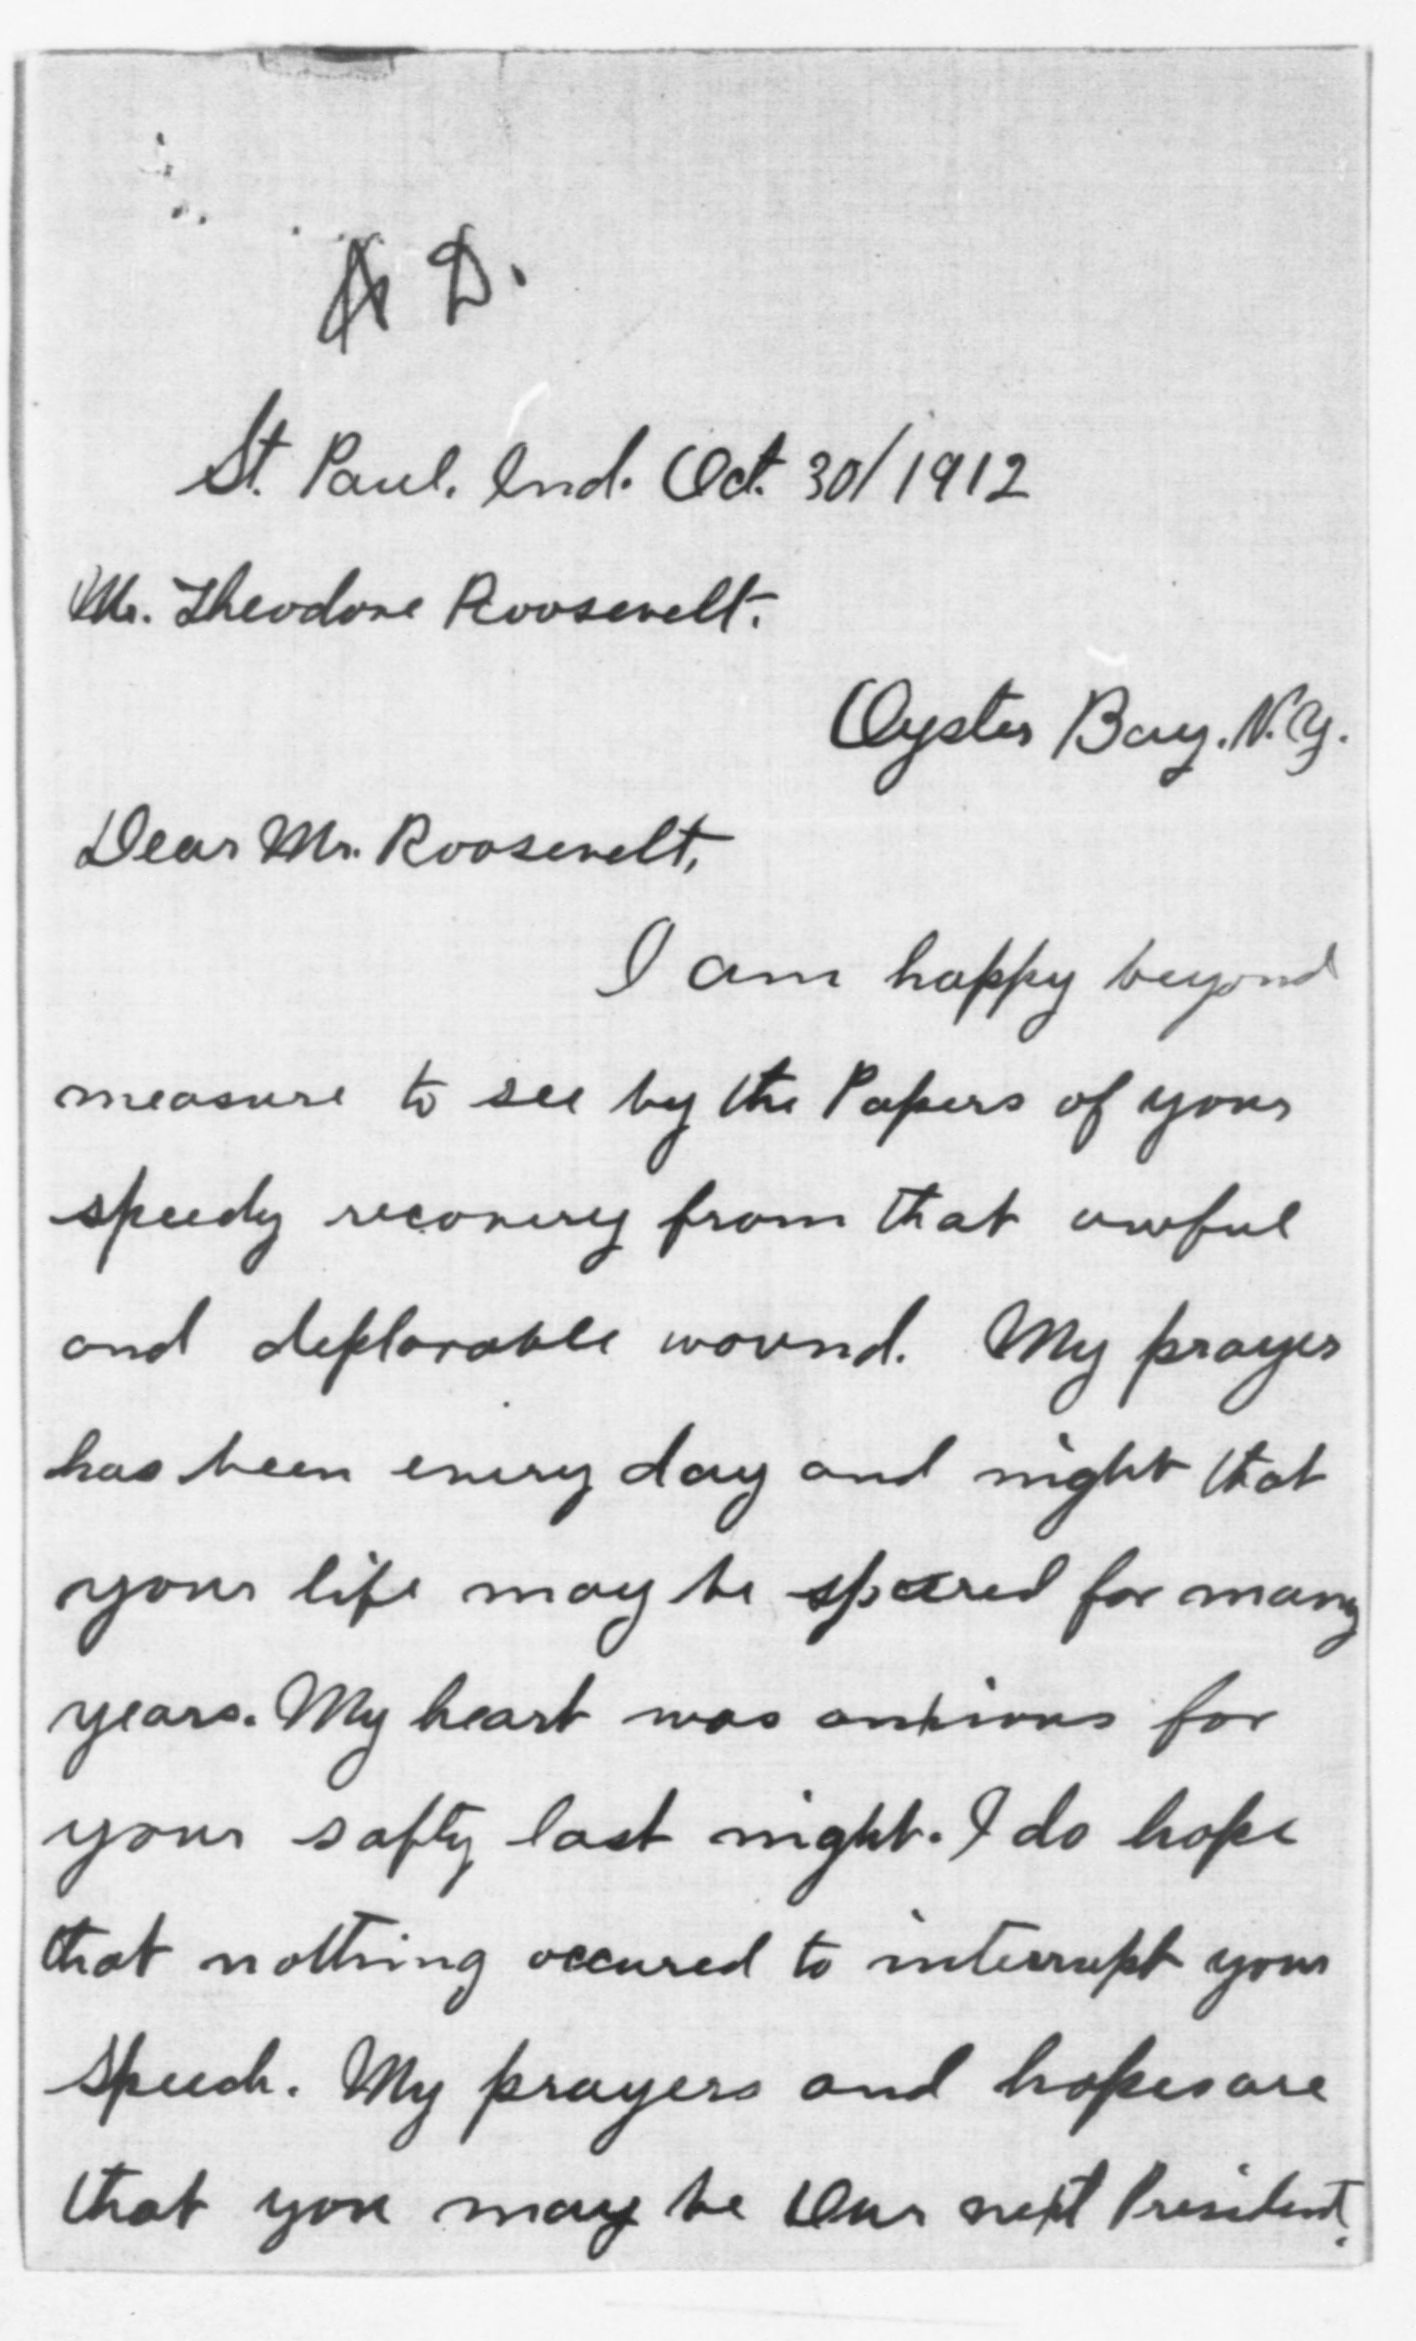 D.
St. Paul. Ind. Oct. 30/1912
Mr. Theodore Roosevelt.
Oyster Bay. N.Y.
Dear Mr. Roosevelt,
I am happy beyond
measure to see by the Papers of your
speedy recovery from that awful
and deplorable wound. My prayer
has been every day and night that
your life may be spared for many
years. My heart was anxious for
your safty last night. I do hope
that nothing occured to interrupt your
speech. My prayers and hopes are
that you may be Our next President.